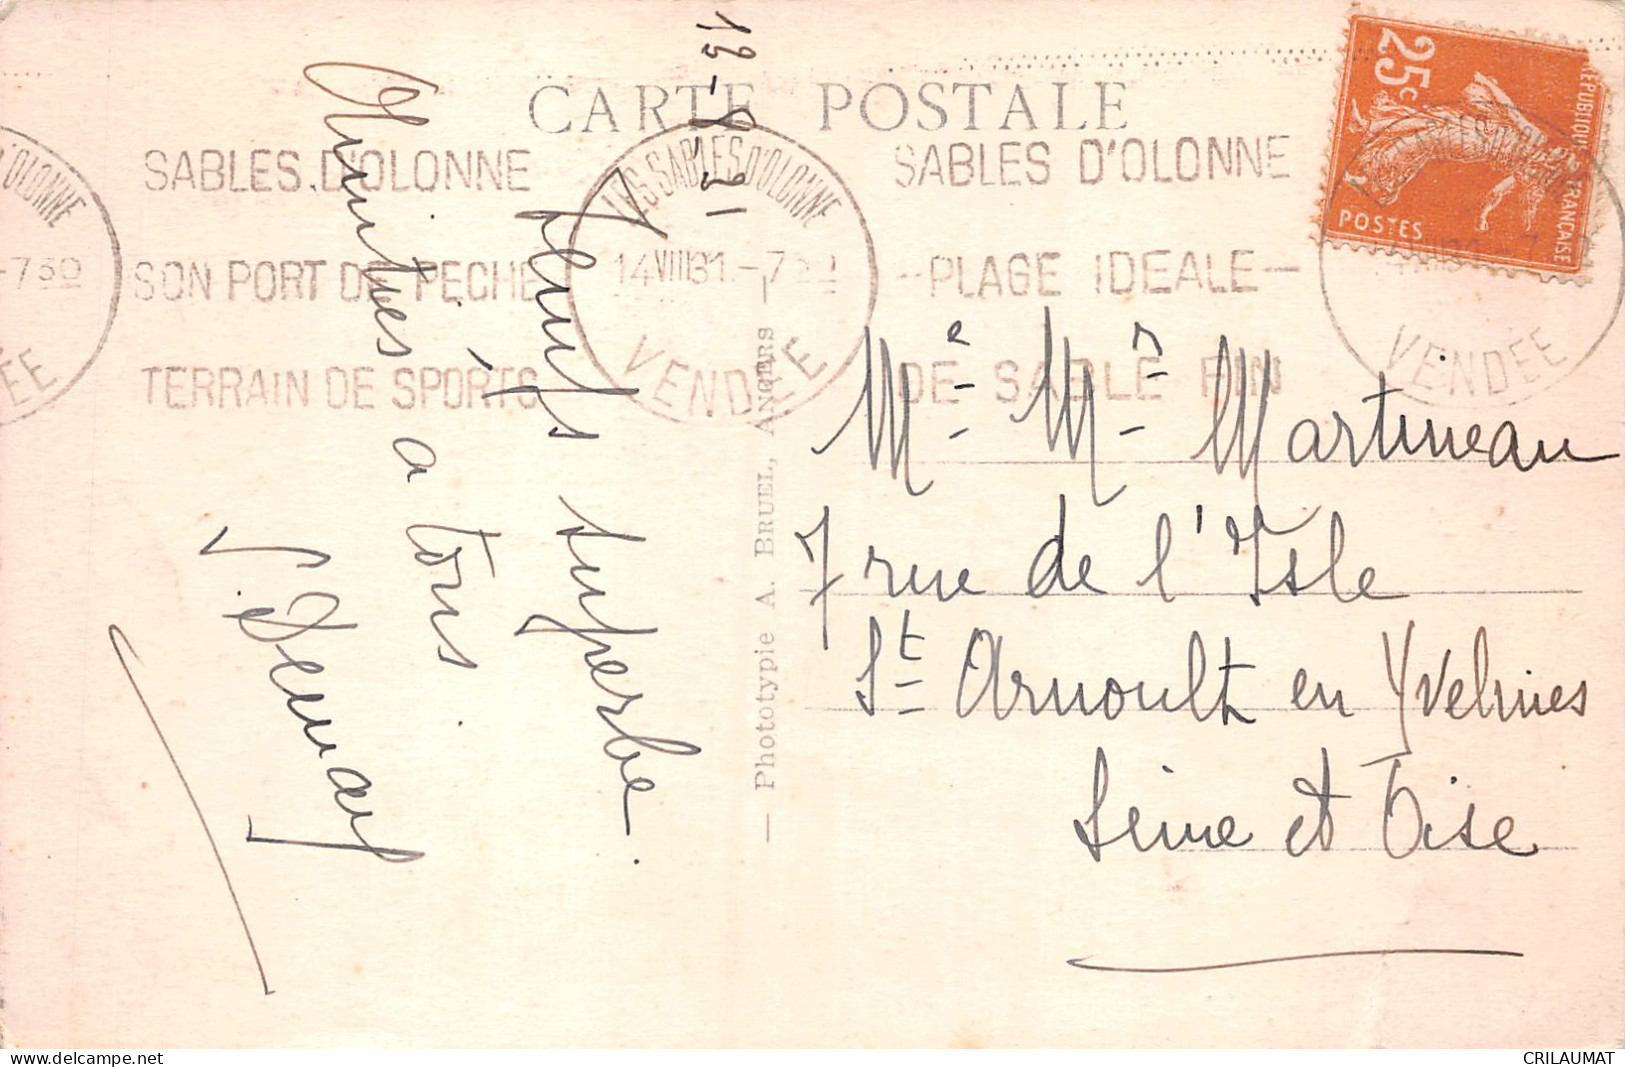 CARTE POSTALE
SABLES D'OLONNE
SON PORT DE PECHE
TERRAIN DE SPORTS
LES SABLES D'OLONNE
14 VIII 31 - 7
VENDEE
SABLES D'OLONNE
- PLAGE IDEALE -
DE SABLE FIN
D'OLONNE
-7 30
EE
25c
REPUBLIQUE FRANÇAISE
POSTES
VENDEE
13-8-31
Temps superbe.
Amitiés à tous.
— Phototypie A. BRUEL, ANGERS —
Me Mr Martineau
7 rue de l'Isle
St Arnoult en Yvelines
Seine et Oise
CRILAUMAT